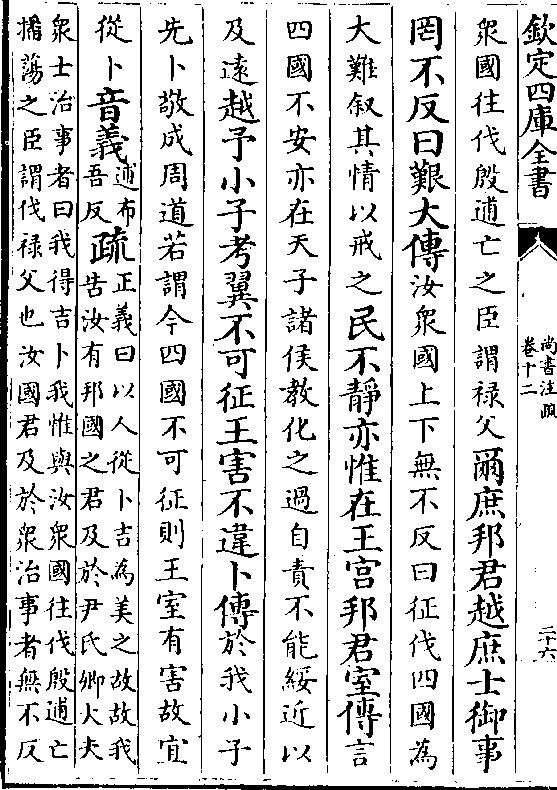 欽定四庫全書
尚書注疏
卷十二
二十六
衆國往伐殷逋亡之臣謂禄父爾庶邦君越庶士御事
罔不反曰艱大傳汝衆國上下無不反曰征伐四國為
大難叙其情以戒之民不靜亦惟在王宫邦君室傳言
四國不安亦在天子諸侯教化之過自責不能綏近以
及遠越予小子考翼不可征王害不違卜傳於我小子
先卜敬成周道若謂今四國不可征則王室有害故宜
從卜音義逋布
吾反疏正義曰以人從卜吉為美之故故我
告汝有邦國之君及於尹氏卿大夫
衆士治事者曰我得吉卜我惟與汝衆國往伐殷逋亡
播蕩之臣謂伐禄父也汝國君及於衆治事者無不反